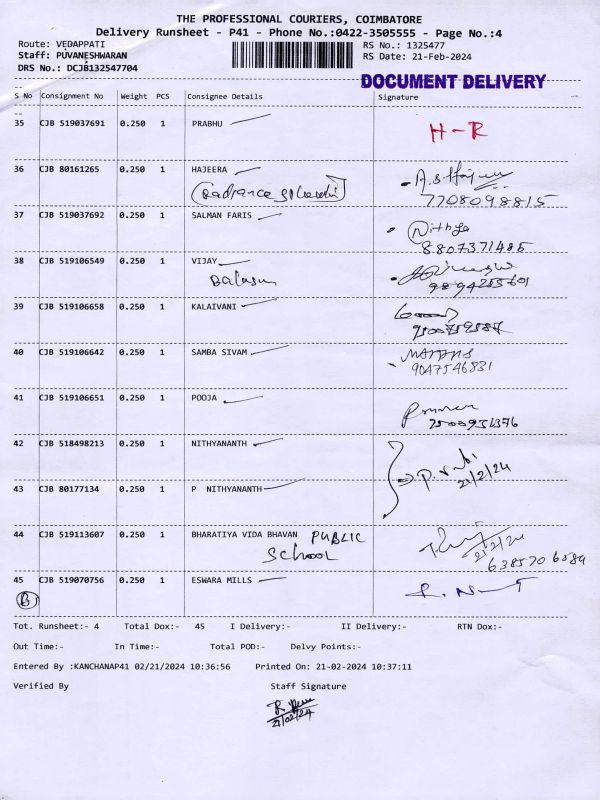 THE PROFESSIONAL COURIERS, COIMBATORE
Delivery Runsheet - P41 - Phone No.:0422-3505555 - Page No.:4
Route: VEDAPPATI RS No.: 1325477
Staff: PUVANESHWARAN RS Date: 21-Feb-2024
DRS No.: DCJB132547704
DOCUMENT DELIVERY
S No Consignment No Weight PCS Consignee Details Signature
35 CJB 519037691 0.250 1 PRABHU H-R
36 CJB 80161265 0.250 1 HAJEERA
7708098815
37 CJB 519037692 0.250 1 SALMAN FARIS Nithya
8807371485
38 CJB 519106549 0.250 1 VIJAY
9894255601
39 CJB 519106658 0.250 1 KALAIVANI
40 CJB 519106642 0.250 1 SAMBA SIVAM
9047546831
41 CJB 519106651 0.250 1 POOJA
42 CJB 518498213 0.250 1 NITHYANANTH
21/2/24
43 CJB 80177134 0.250 1 P NITHYANANTH
44 CJB 519113607 0.250 1 BHARATIYA VIDA BHAVAN PUBLIC
SCHOOL 21/2/24
45 CJB 519070756 0.250 1 ESWARA MILLS
B
Tot. Runsheet:- 4 Total Dox:- 45 I Delivery:- II Delivery:- RTN Dox:-
Out Time:- In Time:- Total POD:- Delvy Points:-
Entered By :KANCHANAP41 02/21/2024 10:36:56 Printed On: 21-02-2024 10:37:11
Verified By Staff Signature
21/02/24